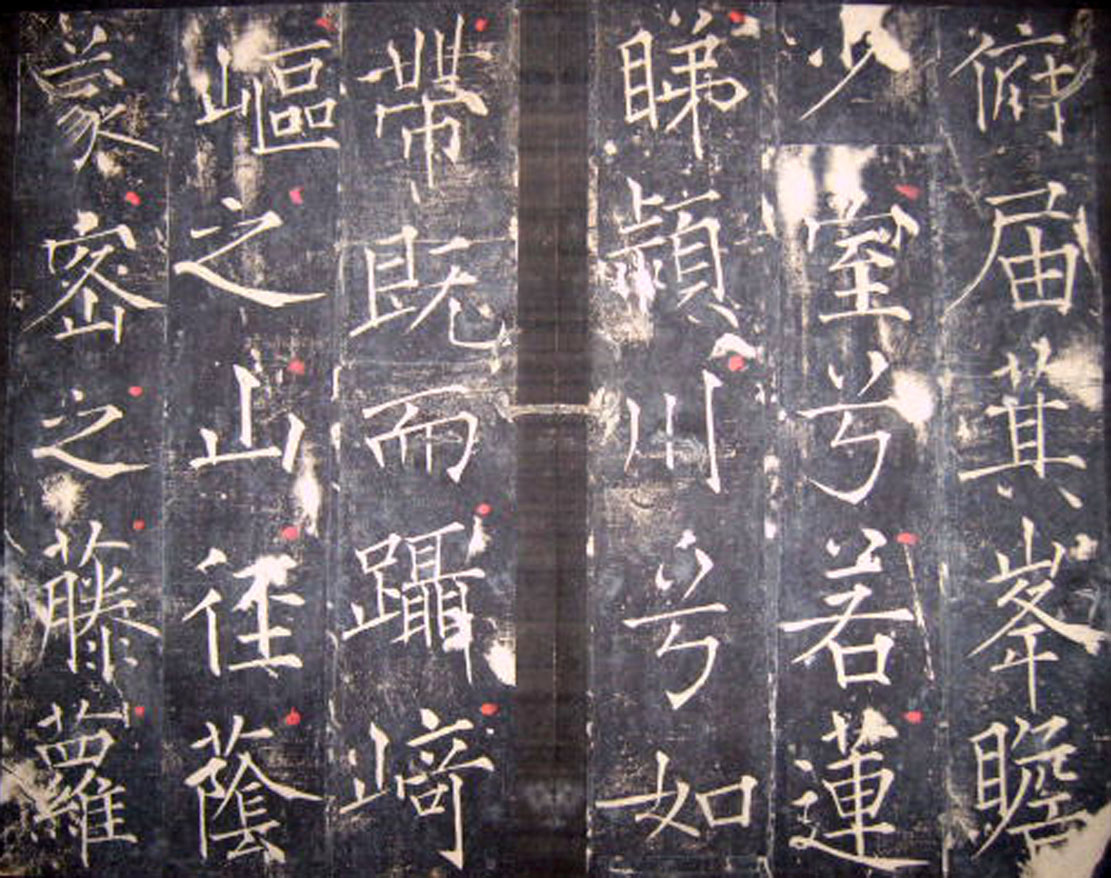 俯届萁峯瞻
少室兮若蓮
睇潁川兮如
帶既而躡崎
嶇之山徑蔭
蒙密之藤蘿